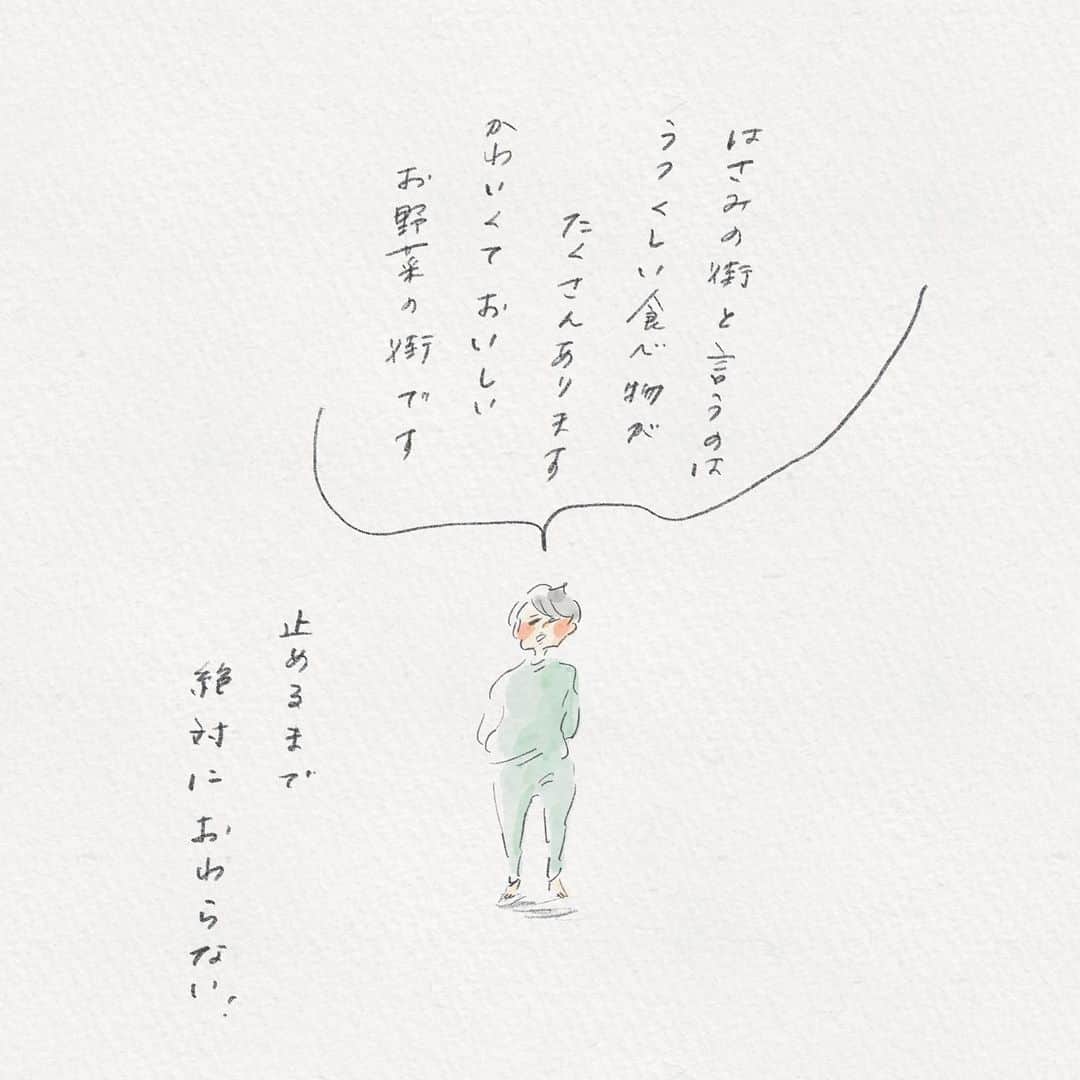 はさみの街と言うのは
うつくしい食べ物が
たくさんあります
かわいくておいしい
お野菜の街です
止めるまで
絶対におわらない!